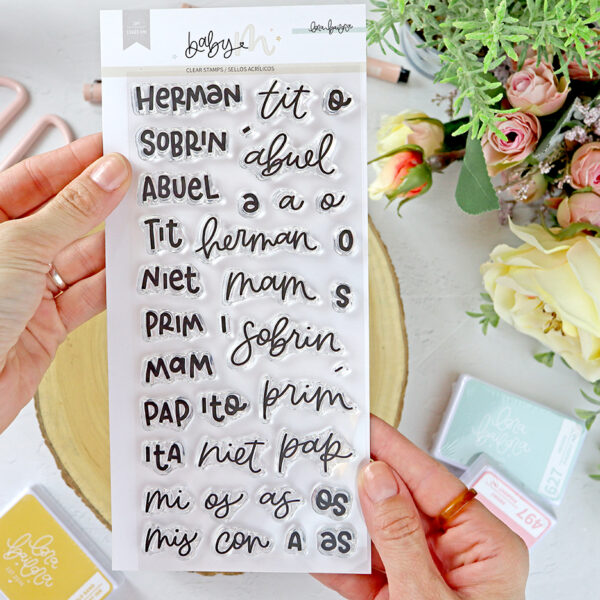 baby M
lora bailora
CLEAR STAMPS / SELLOS ACRÍLICOS
HERMAN tit o
SOBRIN abuel
ABUEL a a o
Tit herman o
NIET mam s
PRIM sobrin
MAM
PAP ito prim
ITA niet pap
mi os as os
mis con A as
lora bailora
627
497
lora bailora